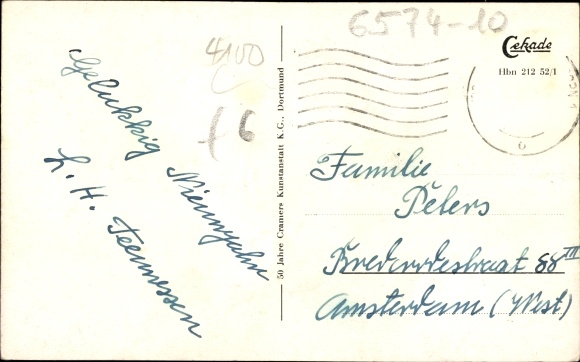 6574-10
4100
Cekade
Hbn 212 52/1
6
Gelukkig Nieuwjahr
L. H. Teennessen
50 Jahre Cramers Kunstanstalt K.G., Dortmund
Familie
Peters
Brederodestraat 88 III
Amsterdam (West)